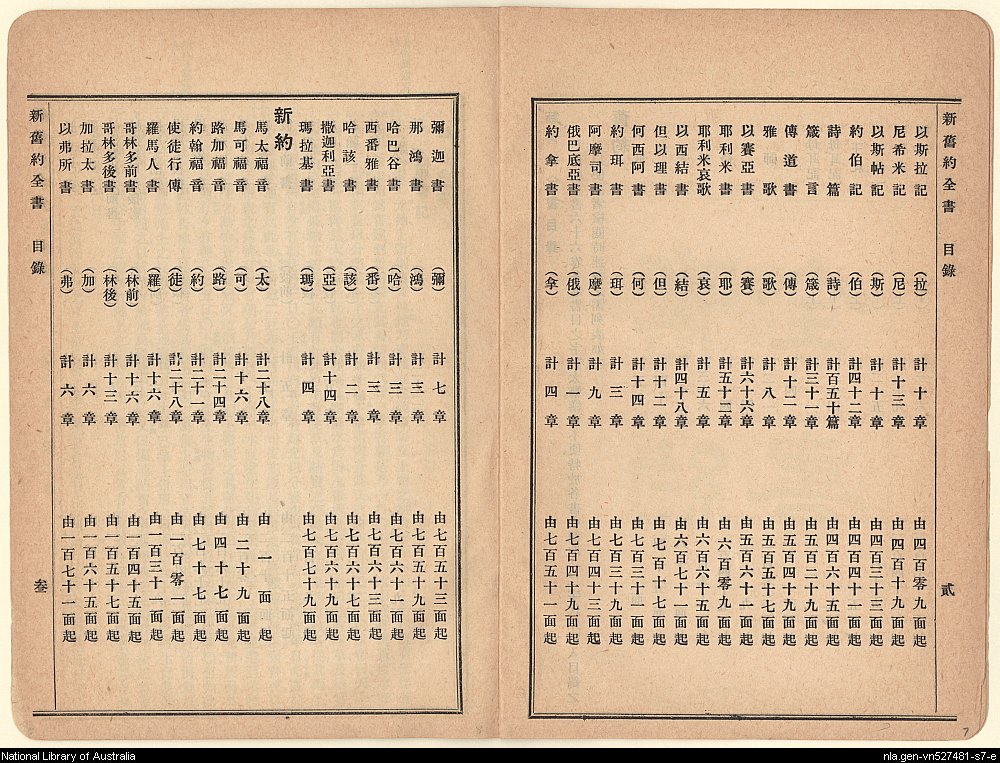 新舊約全書 目錄 貳
以斯拉記 （拉） 計十章 由四百零九面起
尼希米記 （尼） 計十三章 由四百十九面起
以斯帖記 （斯） 計十章 由四百三十三面起
約伯記 （伯） 計四十二章 由四百四十一面起
詩篇 （詩） 計百五十篇 由四百六十五面起
箴言 （箴） 計三十一章 由五百二十九面起
傳道書 （傳） 計十二章 由五百四十九面起
雅歌 （歌） 計八章 由五百五十七面起
以賽亞書 （賽） 計六十六章 由五百六十一面起
耶利米書 （耶） 計五十二章 由六百零九面起
耶利米哀歌 （哀） 計五章 由六百六十五面起
以西結書 （結） 計四十八章 由六百七十一面起
但以理書 （但） 計十二章 由七百十七面起
何西阿書 （何） 計十四章 由七百三十一面起
約珥書 （珥） 計三章 由七百三十九面起
阿摩司書 （摩） 計九章 由七百四十三面起
俄巴底亞書 （俄） 計一章 由七百四十九面起
約拿書 （拿） 計四章 由七百五十一面起
彌迦書 （彌） 計七章 由七百五十三面起
那鴻書 （鴻） 計三章 由七百五十九面起
哈巴谷書 （哈） 計三章 由七百六十一面起
西番雅書 （番） 計三章 由七百六十三面起
哈該書 （該） 計二章 由七百六十七面起
撒迦利亞書 （亞） 計十四章 由七百六十九面起
瑪拉基書 （瑪） 計四章 由七百七十九面起
新約
馬太福音 （太） 計二十八章 由一面起
馬可福音 （可） 計十六章 由二十九面起
路加福音 （路） 計二十四章 由四十七面起
約翰福音 （約） 計二十一章 由七十七面起
使徒行傳 （徒） 計二十八章 由一百零一面起
羅馬人書 （羅） 計十六章 由一百三十一面起
哥林多前書 （林前） 計十六章 由一百四十五面起
哥林多後書 （林後） 計十三章 由一百五十七面起
加拉太書 （加） 計六章 由一百六十五面起
以弗所書 （弗） 計六章 由一百七十一面起
新舊約全書 目錄 叁
7
National Library of Australia
nla.gen-vn527481-s7-e